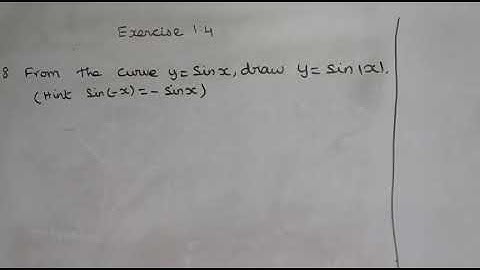 Exercise 1.4
8 From the curve y = sin x, draw y = sin |x|.
(Hint sin(-x) = - sin x)